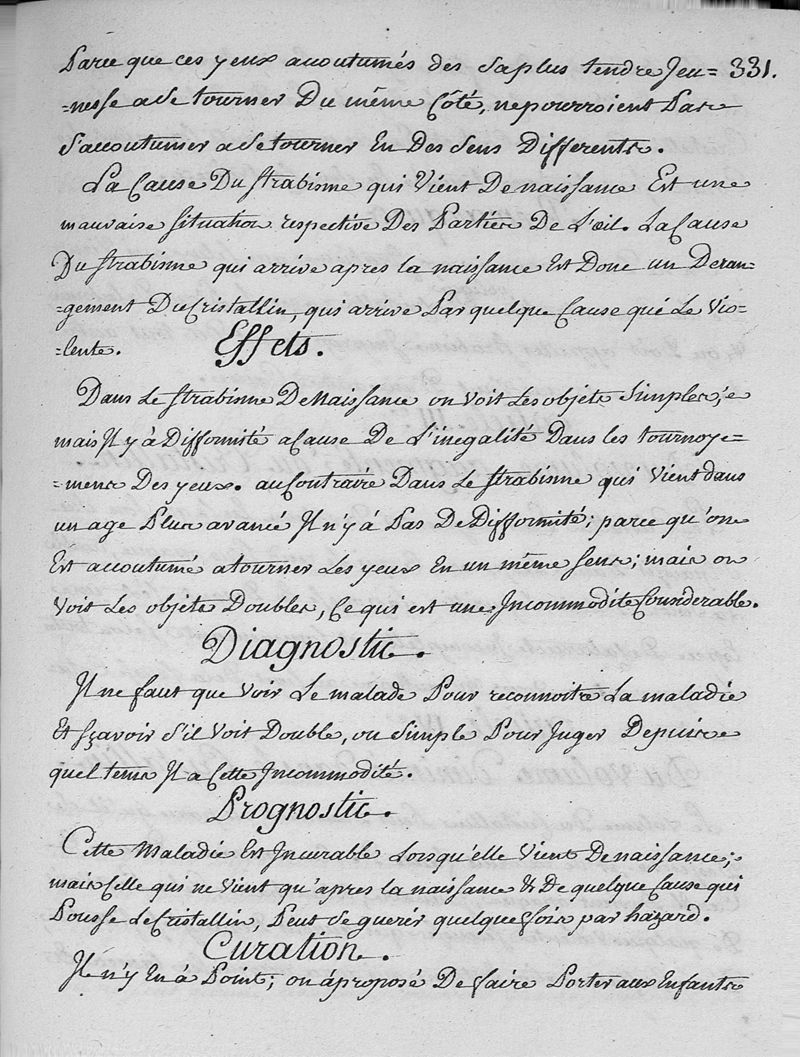 Parce que ces yeux acoutumés des sa plus tendre Jeu= 331.
=nesse a se tourner Du même Côté, ne pourroient Pas
S'accoutumer a se tourner En Des Sens Differents.
La Cause Du strabisme qui Vient De naissance Est une
mauvaise situation respective Des Parties De L'œil. La Cause
Du strabisme qui arrive apres la naissance Est Donc un Deran=
=gement Du Cristallin, qui arrive Par quelque Cause que Le Vio=
=lente. Effets.
Dans Le strabisme De Naissance on Voit Les objets Simples;
mais Il y à Difformité a Cause De L'inegalité Dans les tournoye=
=mens Des yeux. au Contraire Dans Le strabisme qui Vient dans
un age Plus avancé Il n'y à Pas De Difformité; parce qu'on
Est accoutumé a tourner Les yeux En un même sens; mais on
Voit Les objets Doubles, Ce qui est une Incommodité Considerable.
Diagnostic.
Il ne faut que Voir Le malade Pour reconnoitre La maladie
Et sçavoir S'il Voit Double, ou Simple Pour Juger Depuis
quel tems Il a Cette Incommodité.
Prognostic.
Cette Maladie Est Incurable Lorsqu'elle Vient De naissance;
mais Celle qui ne Vient qu'apres la naissance & De quelque Cause qui
Pousse Le Cristallin, Peut Se guerir quelque fois par hazard.
Curation.
Il n'y En à Point; on à proposé De faire Porter aux Enfants